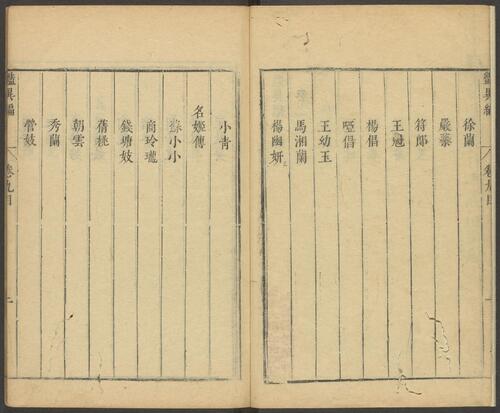 豔異編 卷九目
徐蘭
嚴蘂
符郎
王魁
楊倡
啞倡
王幼玉
馬湘蘭
楊幽妍
小青
名姬傳
蘇小小
商玲瓏
錢塘妓
蒨桃
朝雲
秀蘭
營妓
豔異編 卷九目 一